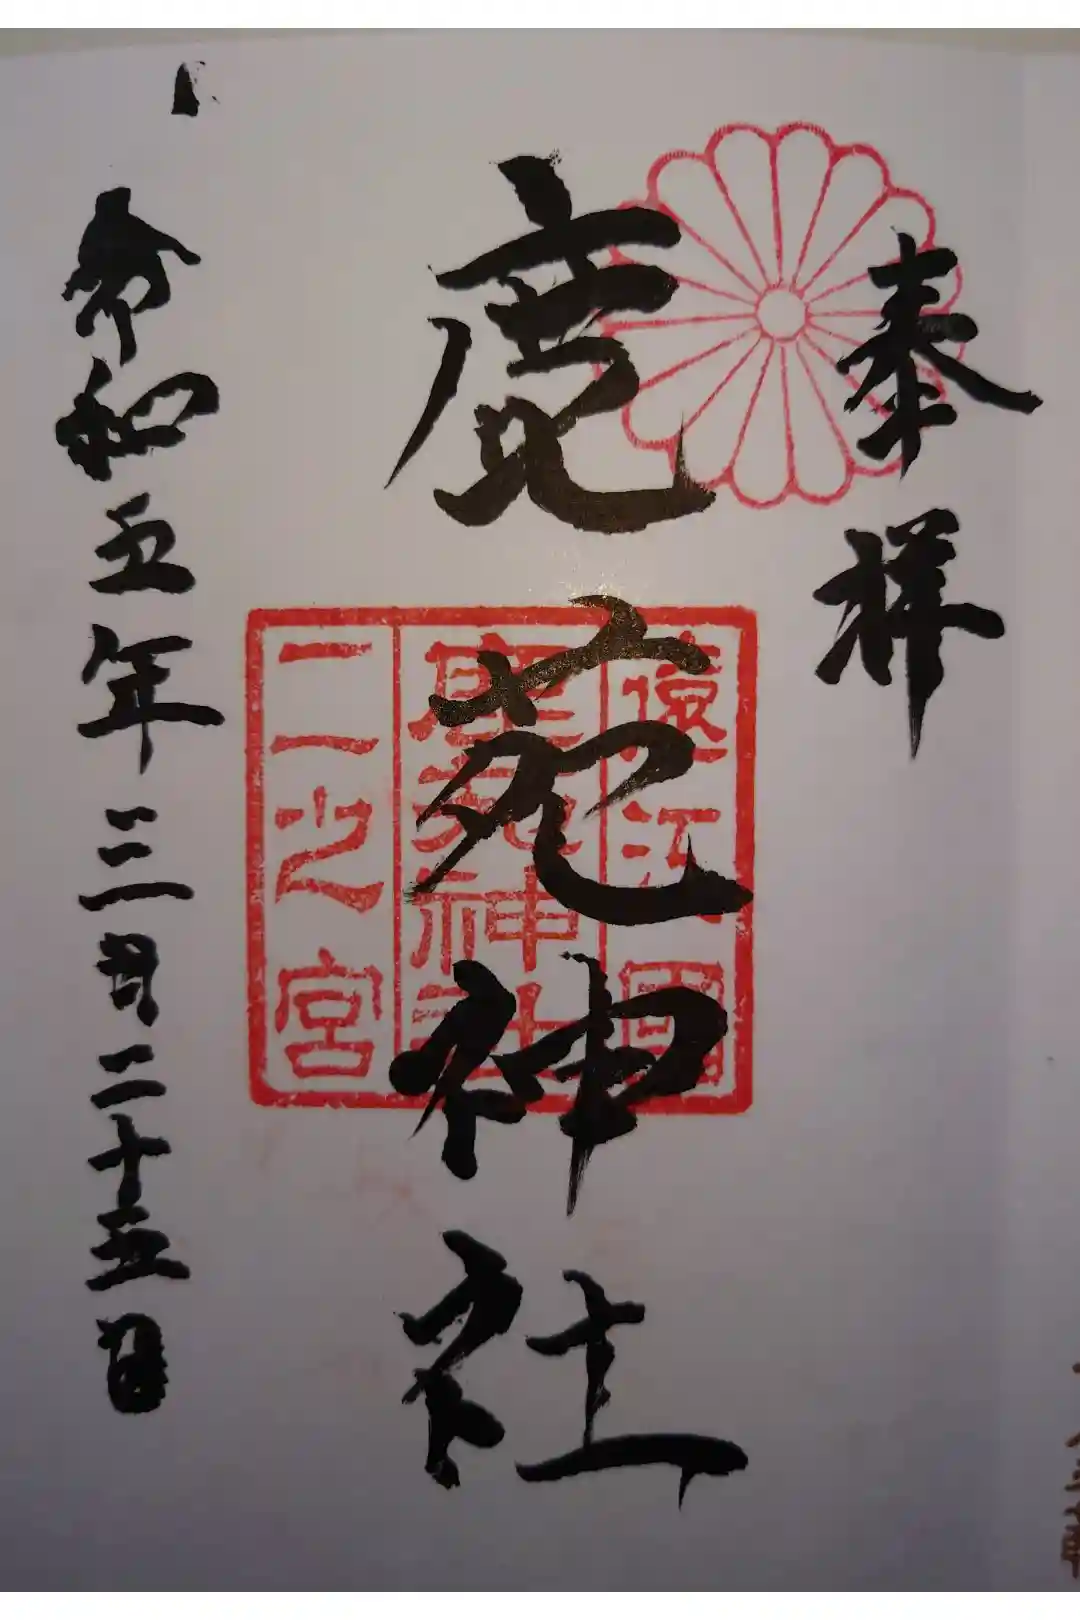 奉拝
鹿苑神社
遠江國
鹿苑神社
二之宮
令和五年三月二十五日